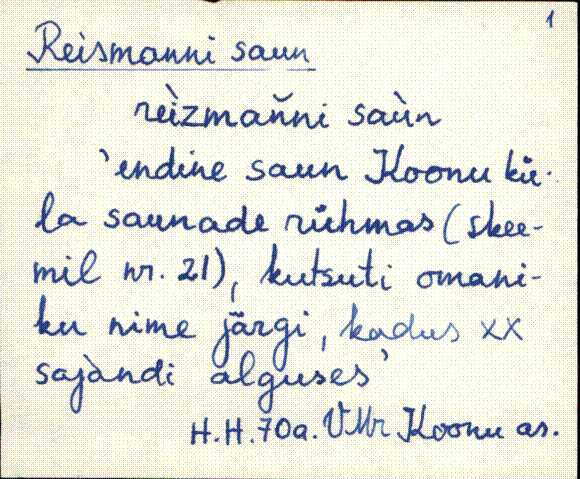 1
Reismanni saun
reìzmaňni saùn
'endine saun Koonu kü-
la saunade rühmas (skee-
mil nr. 21), kutsuti omani-
ku nime järgi, kadus XX
sajandi alguses'
H.H. 70a. VMr Koonu as.